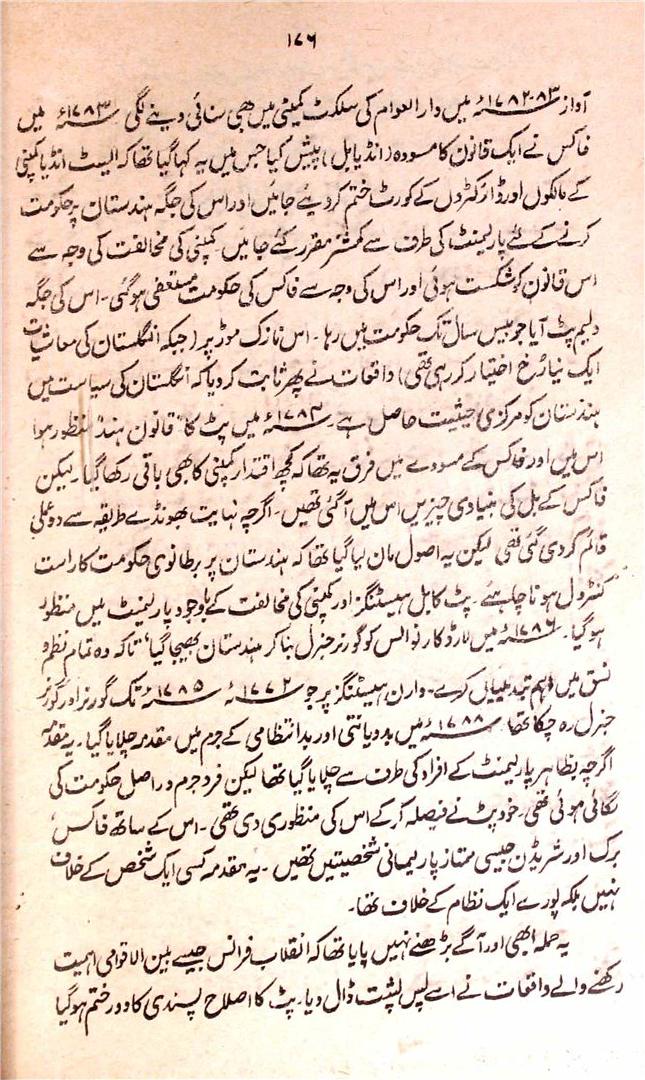 ۱۷۶
آواز ۸۳-۱۷۸۲ء میں دارالعوام کی سلکٹ کمیٹی میں بھی سنائی دینے لگی ۱۷۸۳ء میں
فاکس نے ایک قانون کا مسودہ (انڈیا بل) پیش کیا جس میں یہ کہا گیا تھا کہ ایسٹ انڈیا کمپنی
کے مالکوں اور ڈائرکٹروں کے کورٹ ختم کر دیئے جائیں اور اس کی جگہ ہندستان پر حکومت
کرنے کے لئے پارلیمنٹ کی طرف سے کمشنر مقرر کئے جائیں۔ کمپنی کی مخالفت کی وجہ سے
اس قانون کو شکست ہوئی اور اس کی وجہ سے فاکس کی حکومت مستعفی ہو گئی۔ اس کی جگہ
ولیم پٹ آیا جو بیس سال تک حکومت میں رہا۔ اس نازک موڑ پر (جبکہ انگلستان کی معاشیات
ایک نیا رُخ اختیار کر رہی تھی) واقعات نے پھر ثابت کر دیا کہ انگلستان کی سیاست میں
ہندستان کو مرکزی حیثیت حاصل ہے۔ ۱۷۸۴ء میں پٹ کا "قانون ہند" منظور ہوا
اس میں اور فاکس کے مسودے میں فرق یہ تھا کہ کچھ اقتدار کمپنی کا بھی باقی رکھا گیا۔ لیکن
فاکس کے بل کی بنیادی چیزیں اس میں آ گئی تھیں۔ اگرچہ نہایت بھونڈے طریقہ سے دو عملی
قائم کر دی گئی تھی لیکن یہ اصول مان لیا گیا تھا کہ ہندستان پر برطانوی حکومت کا راست
کنٹرول ہونا چاہئے۔ پٹ کا بل ہیسٹنگز اور کمپنی کی مخالفت کے باوجود پارلیمنٹ میں منظور
ہو گیا۔ ۱۷۸۶ء میں لارڈ کارنوالس کو گورنر جنرل بنا کر ہندستان بھیجا گیا، تاکہ وہ تمام نظم و
نسق میں اہم تبدیلیاں کرے۔ وارن ہیسٹنگز پر جو ۱۷۷۲ء ۱۷۸۵ء تک گورنر اور گورنر
جنرل رہ چکا تھا ۱۷۸۸ء میں بددیانتی اور بدانتظامی کے جرم میں مقدمہ چلایا گیا۔ یہ مقدمہ
اگرچہ بظاہر پارلیمنٹ کے افراد کی طرف سے چلایا گیا تھا لیکن فرد جرم دراصل حکومت کی
لگائی ہوئی تھی۔ خود پٹ نے فیصلہ کر کے اس کی منظوری دی تھی۔ اس کے ساتھ فاکس،
برک اور شریڈن جیسی ممتاز پارلیمانی شخصیتیں تھیں۔ یہ مقدمہ کسی ایک شخص کے خلاف
نہیں بلکہ پورے ایک نظام کے خلاف تھا۔
یہ حملہ ابھی اور آگے بڑھنے نہیں پایا تھا کہ انقلاب فرانس جیسے بین الاقوامی اہمیت
رکھنے والے واقعات نے اسے پس پشت ڈال دیا۔ پٹ کا اصلاح پسندی کا دور ختم ہو گیا